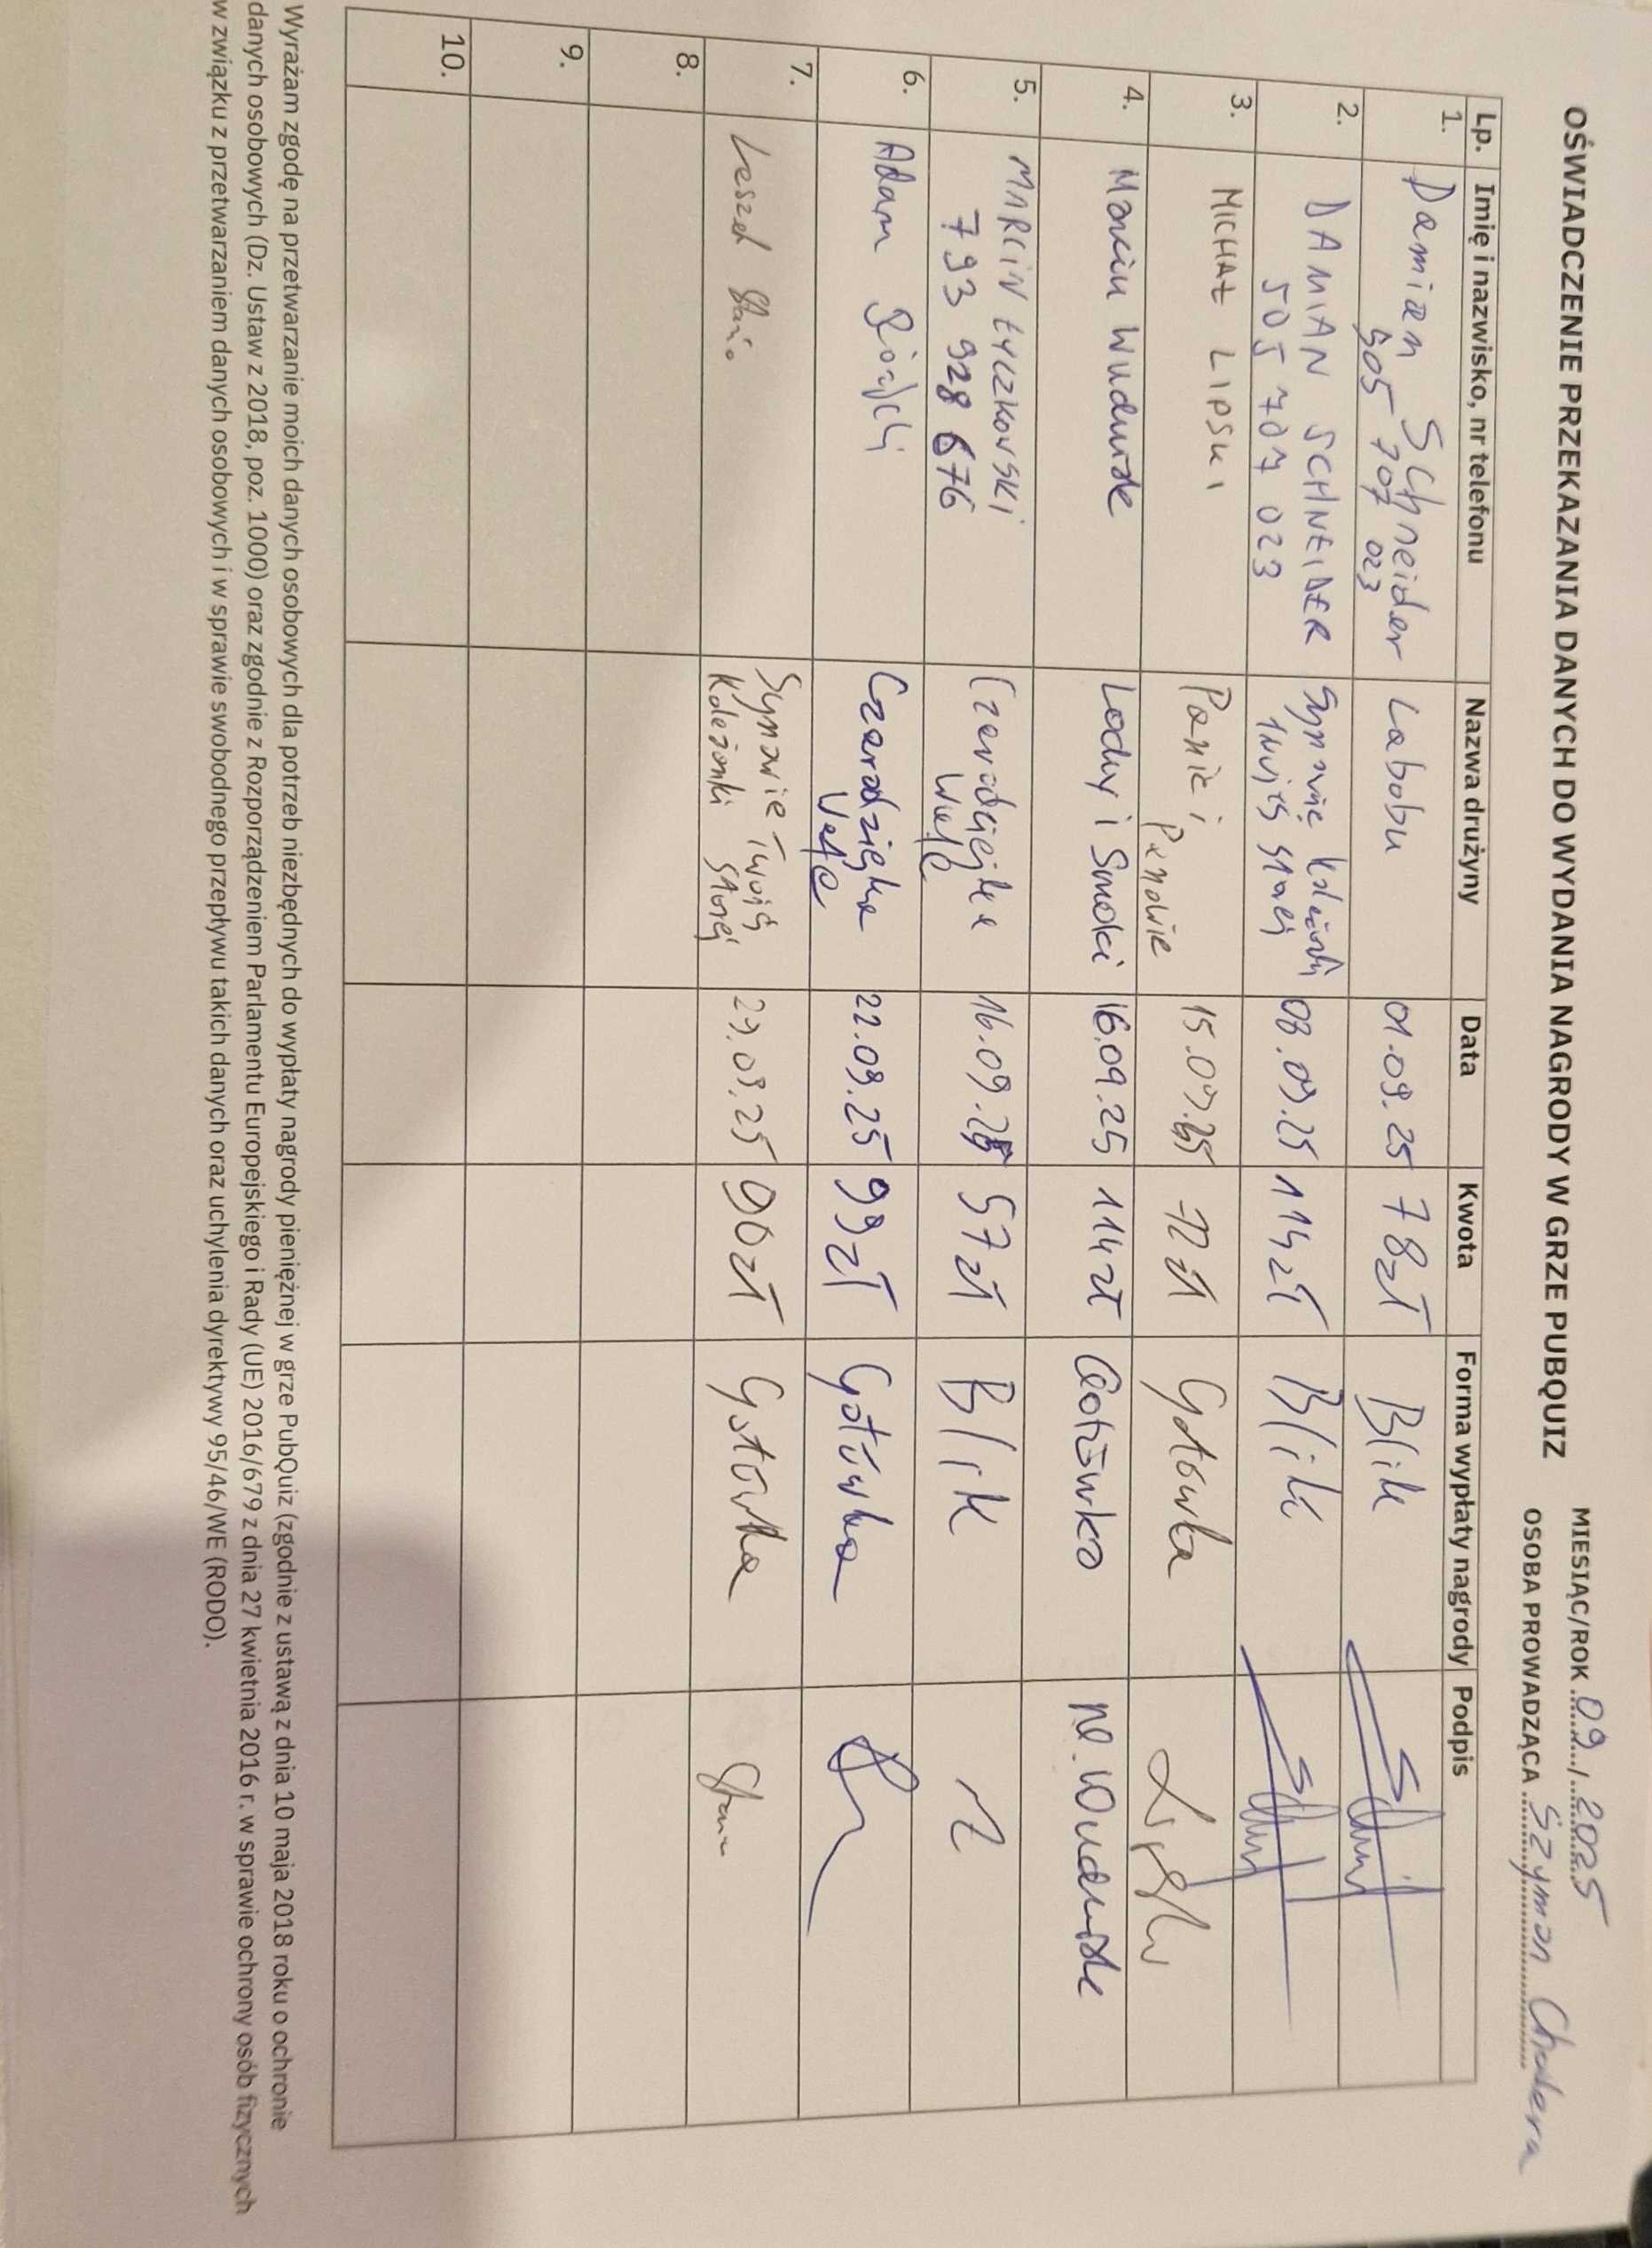 OŚWIADCZENIE PRZEKAZANIA DANYCH DO WYDANIA NAGRODY W GRZE PUBQUIZ
MIESIĄC/ROK 09 / 2025
OSOBA PROWADZĄCA Szymon Chodera
Lp. Imię i nazwisko, nr telefonu Nazwa drużyny Data Kwota Forma wypłaty nagrody Podpis
1. Damian Schneider Labobu 01.09.25 78zł Blik
505 707 023
2. DAMIAN SCHNEIDER Synowie koleżanki 08.09.25 114zł Blik
505 707 023 twojej starej
3. MICHAŁ LIPSKI Panie i 15.09.25 72 zł Gotówka
Panowie
4. Marcin Lochy i Smoki 16.09.25 114 zł Gotówka
5. MARCIN ŁYCZKOWSKI Czarodziejka 16.09.25 57zł Blik
793 928 676
6. Adam Czarodziejka 22.09.25 99zł Gotówka
7. Leszek Synowie Twojej 23.09.25 90zł Gotówka
Koleżanki Starej
8.
9.
10.
Wyrażam zgodę na przetwarzanie moich danych osobowych dla potrzeb niezbędnych do wypłaty nagrody pieniężnej w grze PubQuiz (zgodnie z ustawą z dnia 10 maja 2018 roku o ochronie
danych osobowych (Dz. Ustaw z 2018, poz. 1000) oraz zgodnie z Rozporządzeniem Parlamentu Europejskiego i Rady (UE) 2016/679 z dnia 27 kwietnia 2016 r. w sprawie ochrony osób fizycznych
w związku z przetwarzaniem danych osobowych i w sprawie swobodnego przepływu takich danych oraz uchylenia dyrektywy 95/46/WE (RODO).